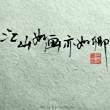 江山如画亦如卿